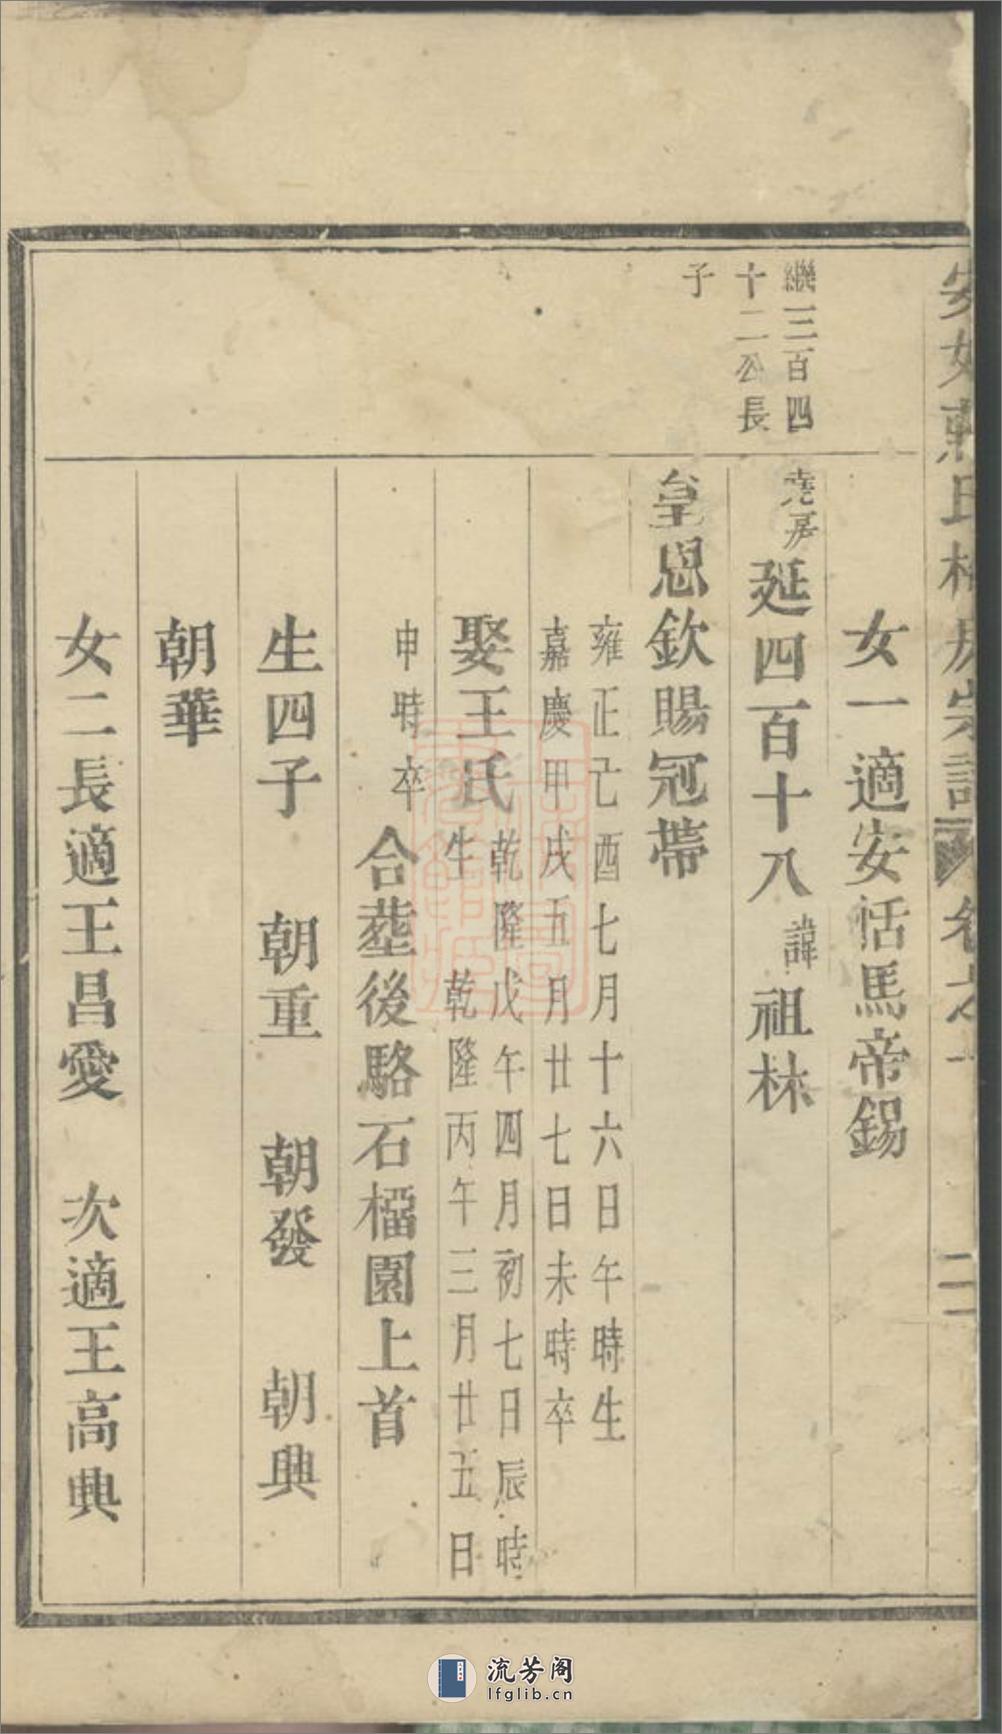 女一適安恬馬帝錫
繼三百四
十二公長
子
堯房
延四百十八諱祖林
皇恩欽賜冠帶
雍正己酉七月十六日午時生
嘉慶甲戌五月廿七日未時卒
娶王氏乾隆戊午四月初七日辰時
生 乾隆丙午三月廿五日
申時卒
合塟後駱石橊園上首
生四子 朝重 朝發 朝興
朝華
女二長適王昌愛 次適王高典
流芳阁
lfglib.cn